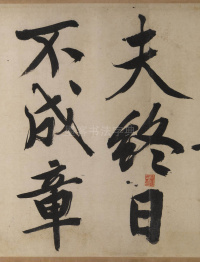 夫終日
不成章